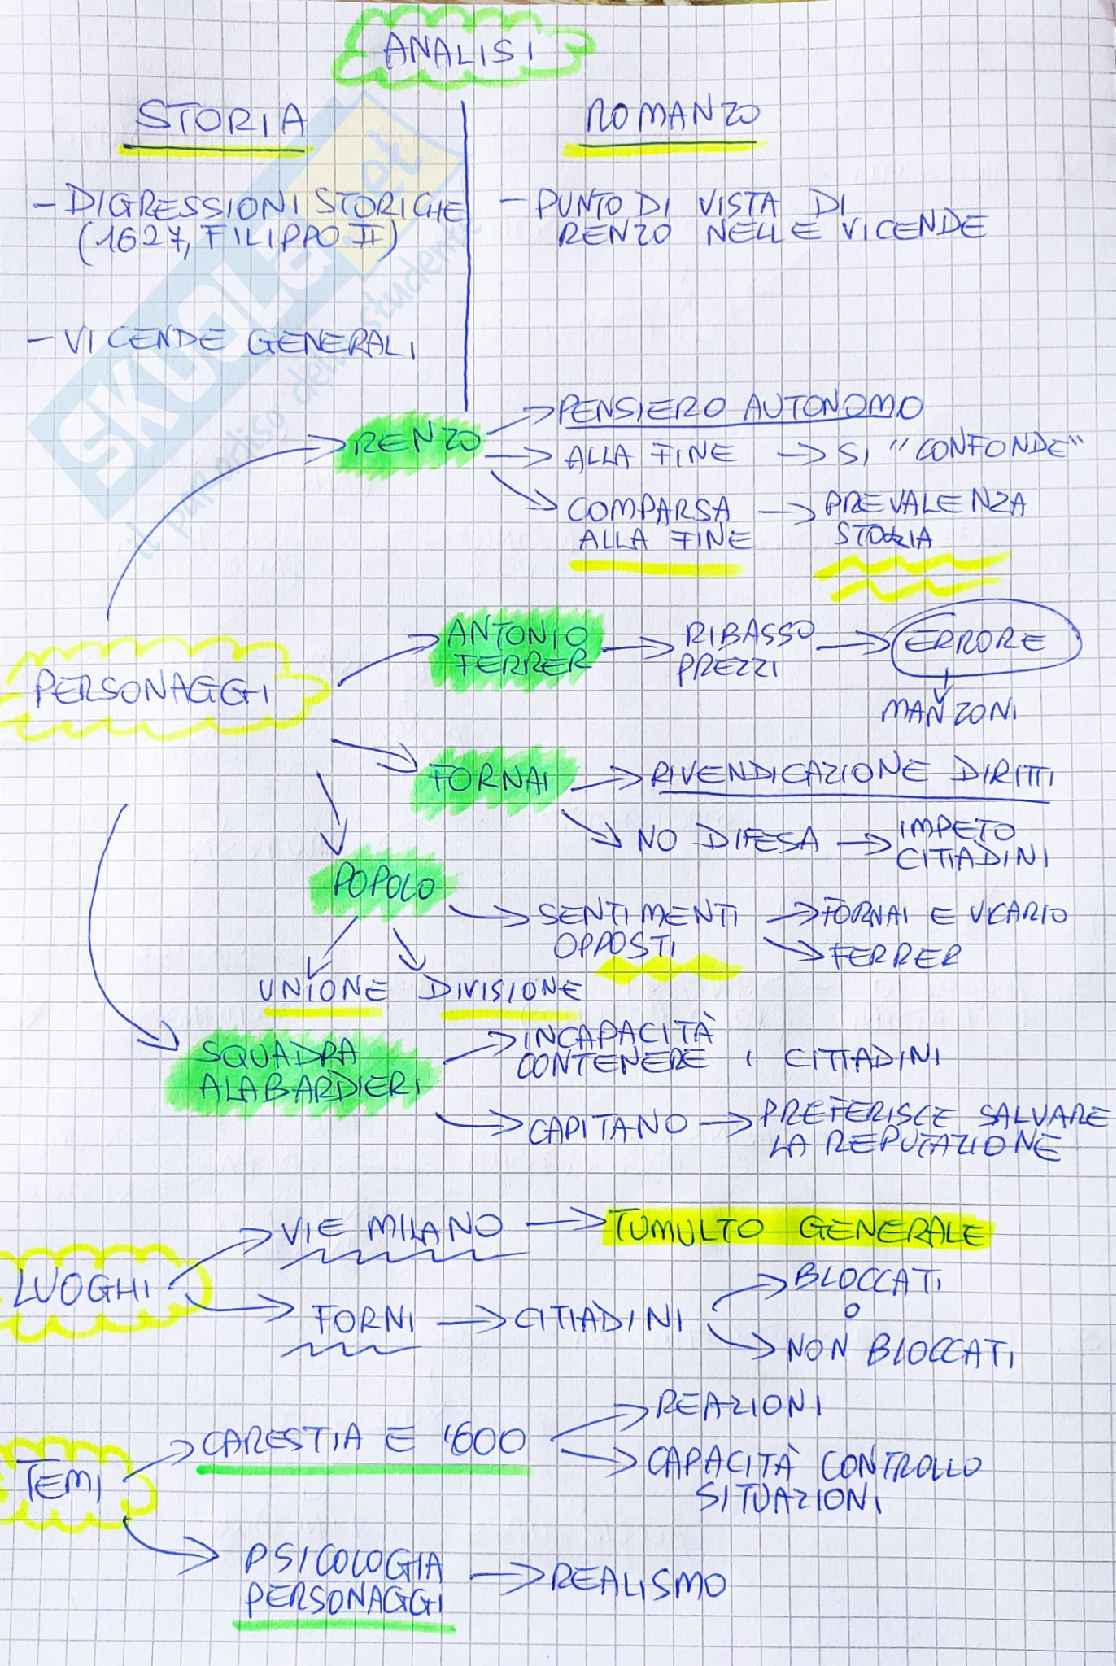 ANALISI
STORIA
ROMANZO
- DIGRESSIONI STORICHE
(1627, FILIPPO II)
- PUNTO DI VISTA DI
RENZO NELLE VICENDE
- VICENDE GENERALI
RENZO
PENSIERO AUTONOMO
ALLA FINE → SI "CONFONDE"
COMPARSA → PREVALENZA
ALLA FINE STORIA
PERSONAGGI
ANTONIO → RIBASSO → ERRORE
FERRER PREZZI
MANZONI
FORNAI → RIVENDICAZIONE DIRITTI
NO DIFESA → IMPETO
CITTADINI
POPOLO
SENTIMENTI → FORNAI E VICARIO
OPPOSTI → FERRER
UNIONE DIVISIONE
SQUADRA
ALABARDIERI
INCAPACITÀ
CONTENERE I CITTADINI
CAPITANO → PREFERISCE SALVARE
LA REPUTAZIONE
LUOGHI
VIE MILANO → TUMULTO GENERALE
FORNI → CITTADINI
BLOCCATI
O
NON BLOCCATI
TEMI
CARESTIA E '600
REAZIONI
CAPACITÀ CONTROLLO
SITUAZIONI
PSICOLOGIA → REALISMO
PERSONAGGI
SKUOLA.net
il paradiso dello studente